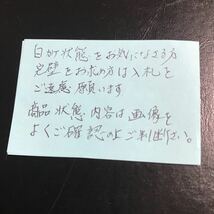 状態をお気になさる方
完璧をお求め方は入札を
ご遠慮願います
商品状態、内容は画像を
よくご確認の上ご判断下さい。